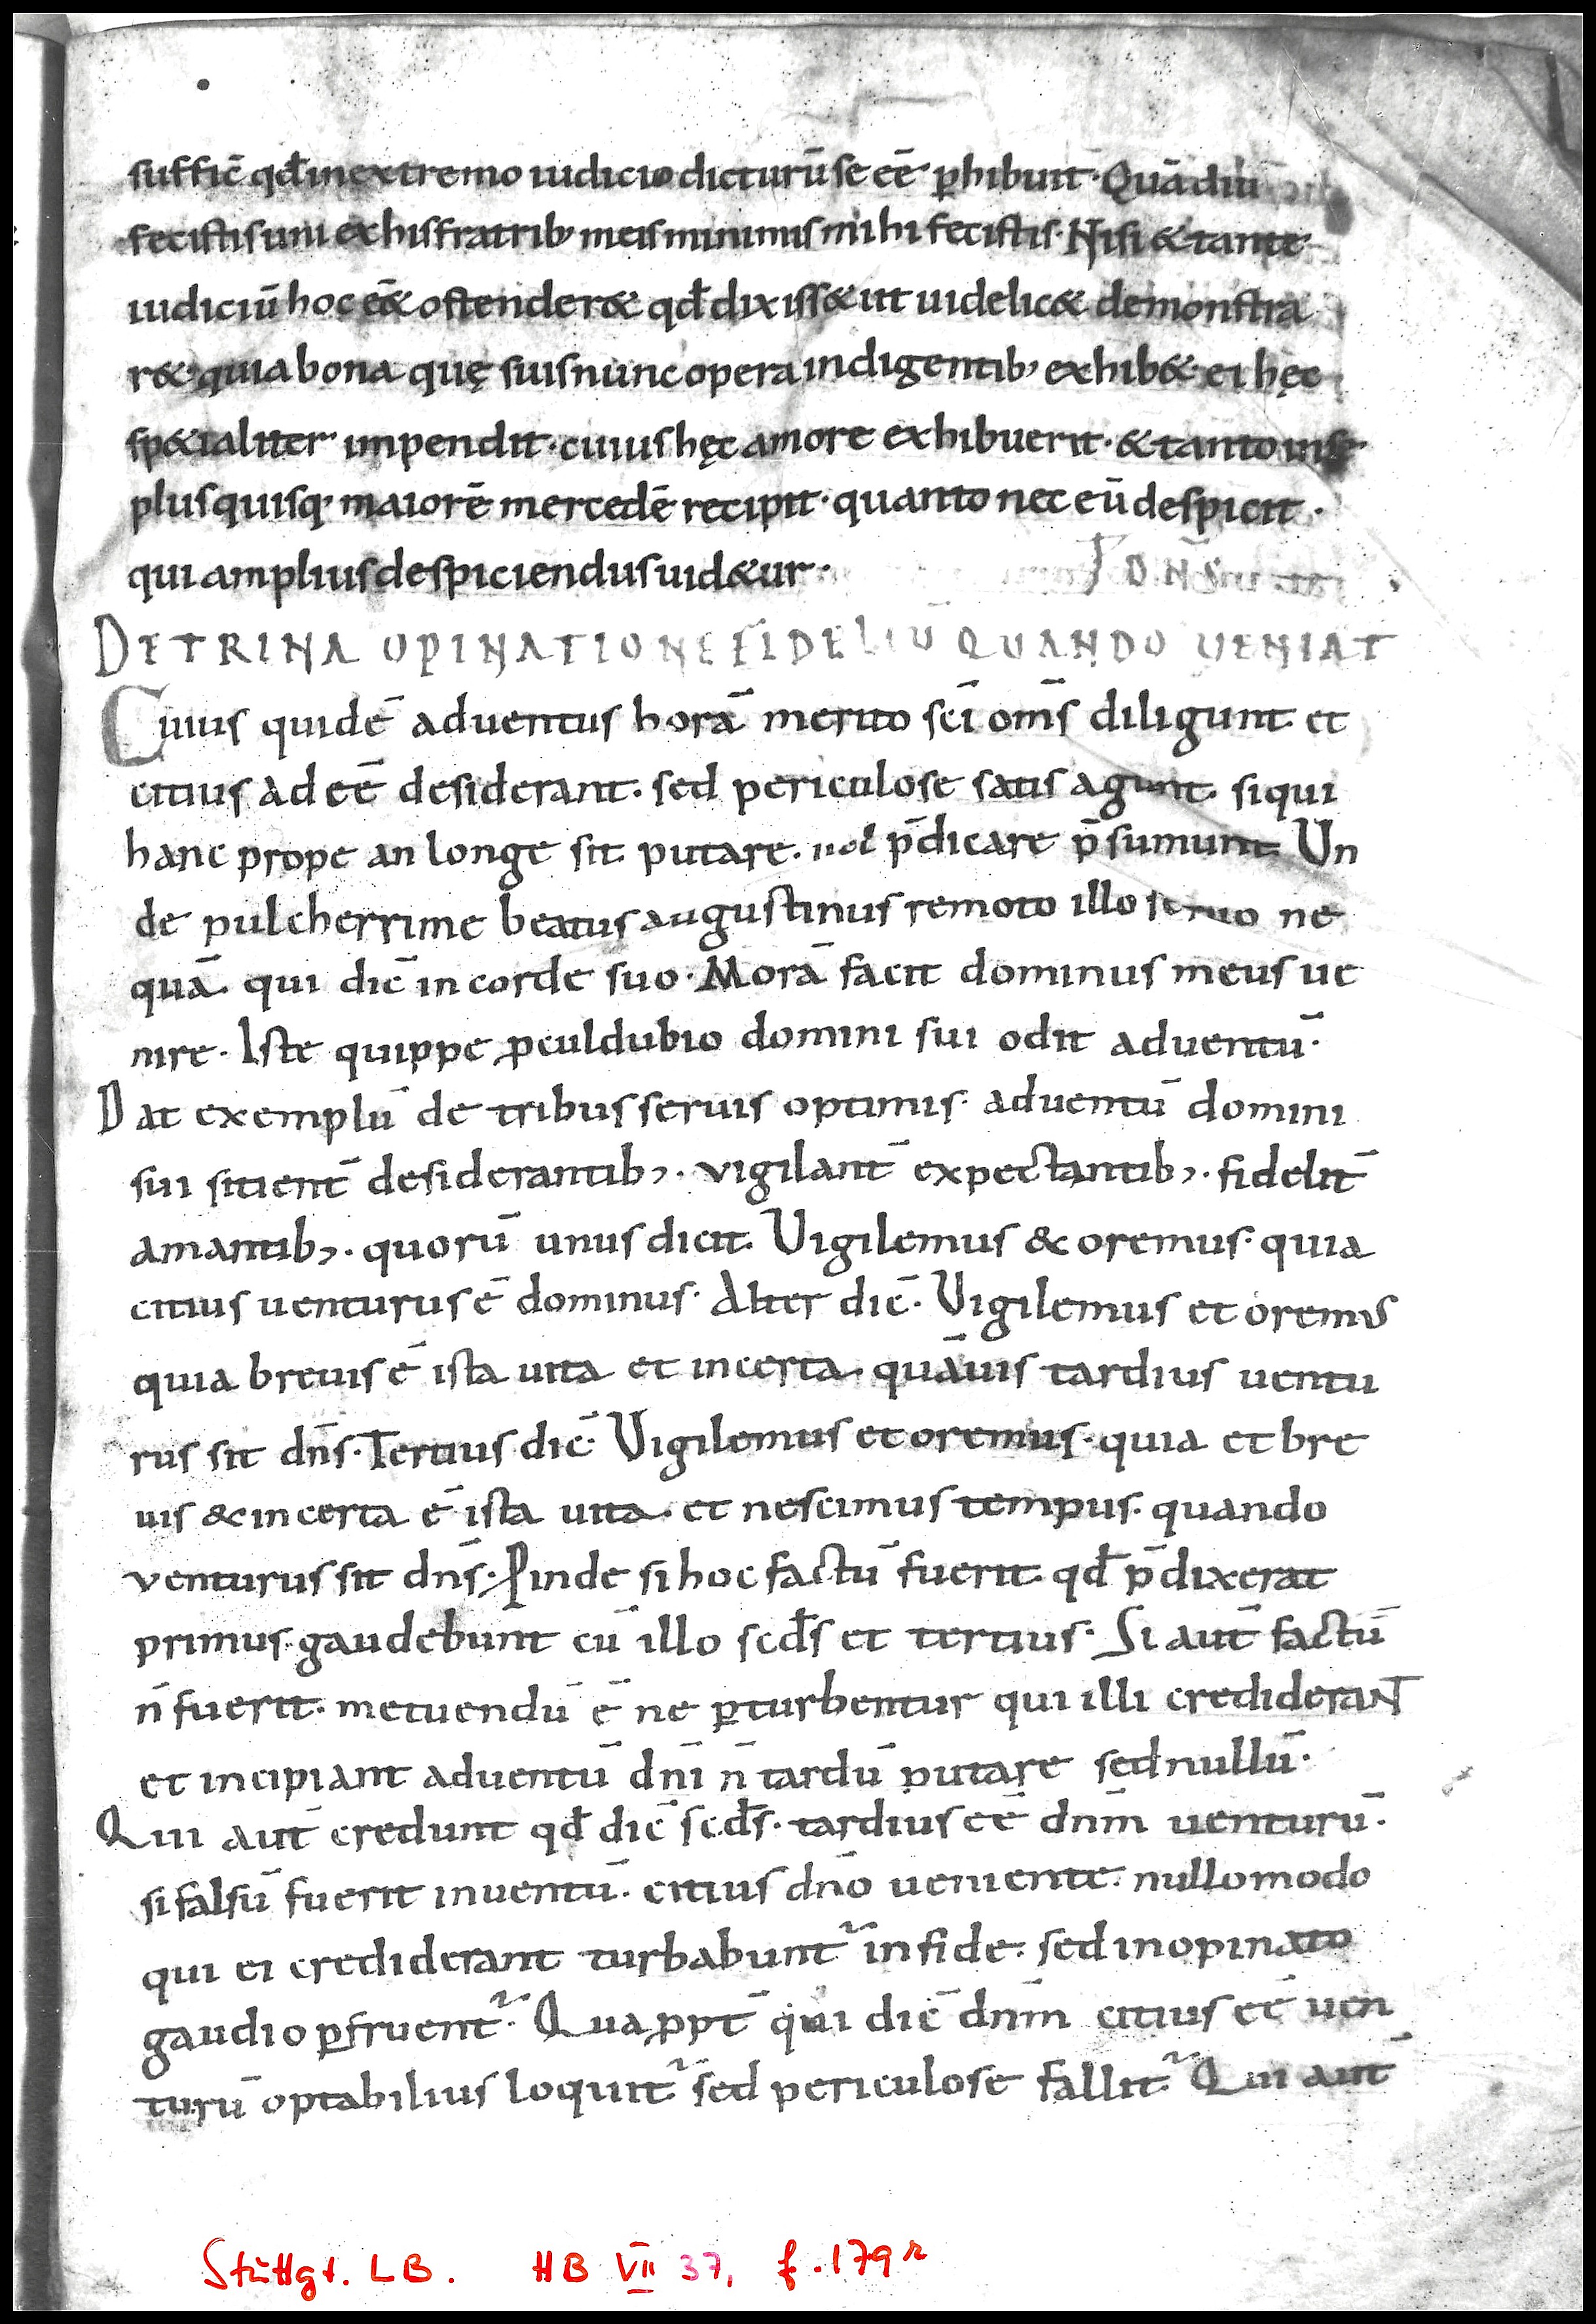 suffic̄ qđ in extremo iudicio dicturū se eē ꝑhibuit· Quādiu
fecistis uni ex his fratrib; meis minimis mihi fecistis· Nisi & tante
iudiciū hoc eē& ostender& qđ dixiss& ut uidelic& demonstra
r&· quia bona quę suis nunc opera indigentib; exhib&· ei hęc
sp&ialiter impendit· cuius hęc amore exhibuerit· & tanto
plus quisq· maiorē mercedē recipit· quanto nec eū despicit·
qui amplius despiciendus uid&ur·
DNS̄
DE TRINA OPINATIONE FIDELIŪ QUANDO UENIAT
Cuius quidē aduentus horā merito sc̄i om̄s diligunt et
citius adeē desiderant· sed periculose satis agunt· si qui
hanc prope an longe sit putare· uel p̄dicare p̄sumunt Un
de pulcherrime beatus augustinus remoto illo seruo ne
quā· qui dic̄ in corde suo· Morā facit dominus meus ue
nire· Iste quippe ꝓculdubio domini sui odit aduentū·
Dat exemplū de tribus seruis optimis· aduentū domini
sui sitient̄ desiderantib;· vigilant̄ expectantib;· fidelit̄
amantib;· quorū unus dicit· Vigilemus & oremus· quia
citius uenturus ē dominus· Alter dic̄· Vigilemus et oremus
quia breuis ē ista uita et incerta· quāuis tardius uentu
rus sit dn̄s· Tertius dic̄· Vigilemus et oremus· quia et bre
uis & incerta ē ista uita· et nescimus tempus· quando
venturus sit dn̄s· Ꝓinde si hoc factū fuerit· qđ p̄dixerat
primus· gaudebunt cū illo scđs et tertius· Si aut̄ factū
n̄ fuerit· metuendū ē ne ꝑturbentur qui illi crediderant
et incipiant aduentū dn̄i n̄ tardū putare sed nullū·
Qui aut̄ credunt qđ dic̄ scđs· tardius eē dnm̄ uenturū·
si falsū fuerit inuentū· citius dn̄o ueniente· nullomodo
qui ei crediderant turbabunt᷑ in fide· sed inopinato
gaudio ꝑfruent᷑· Quaꝓpt̄ qui dic̄ dnm̄ citius eē uen
turū optabilius loquit᷑ sed periculose fallit᷑ Qui aut̄
Stuttgt. LB. HB VII 37, f. 179r